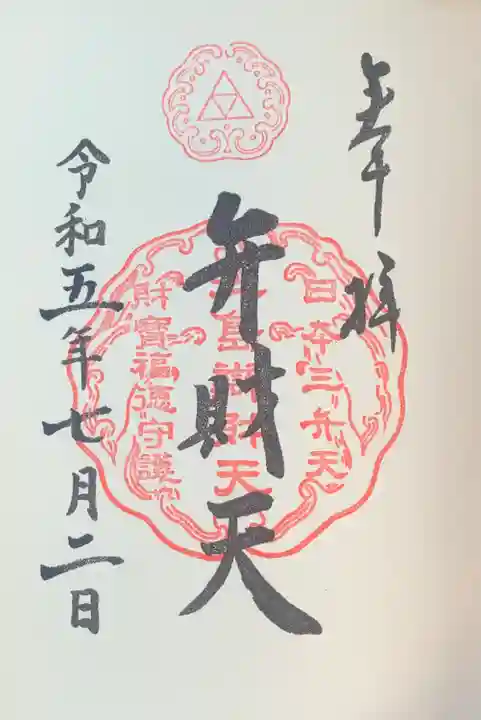 奉拝
日本三弁天
弁財天
島弁財天
財寶福徳守護
令和五年七月二日